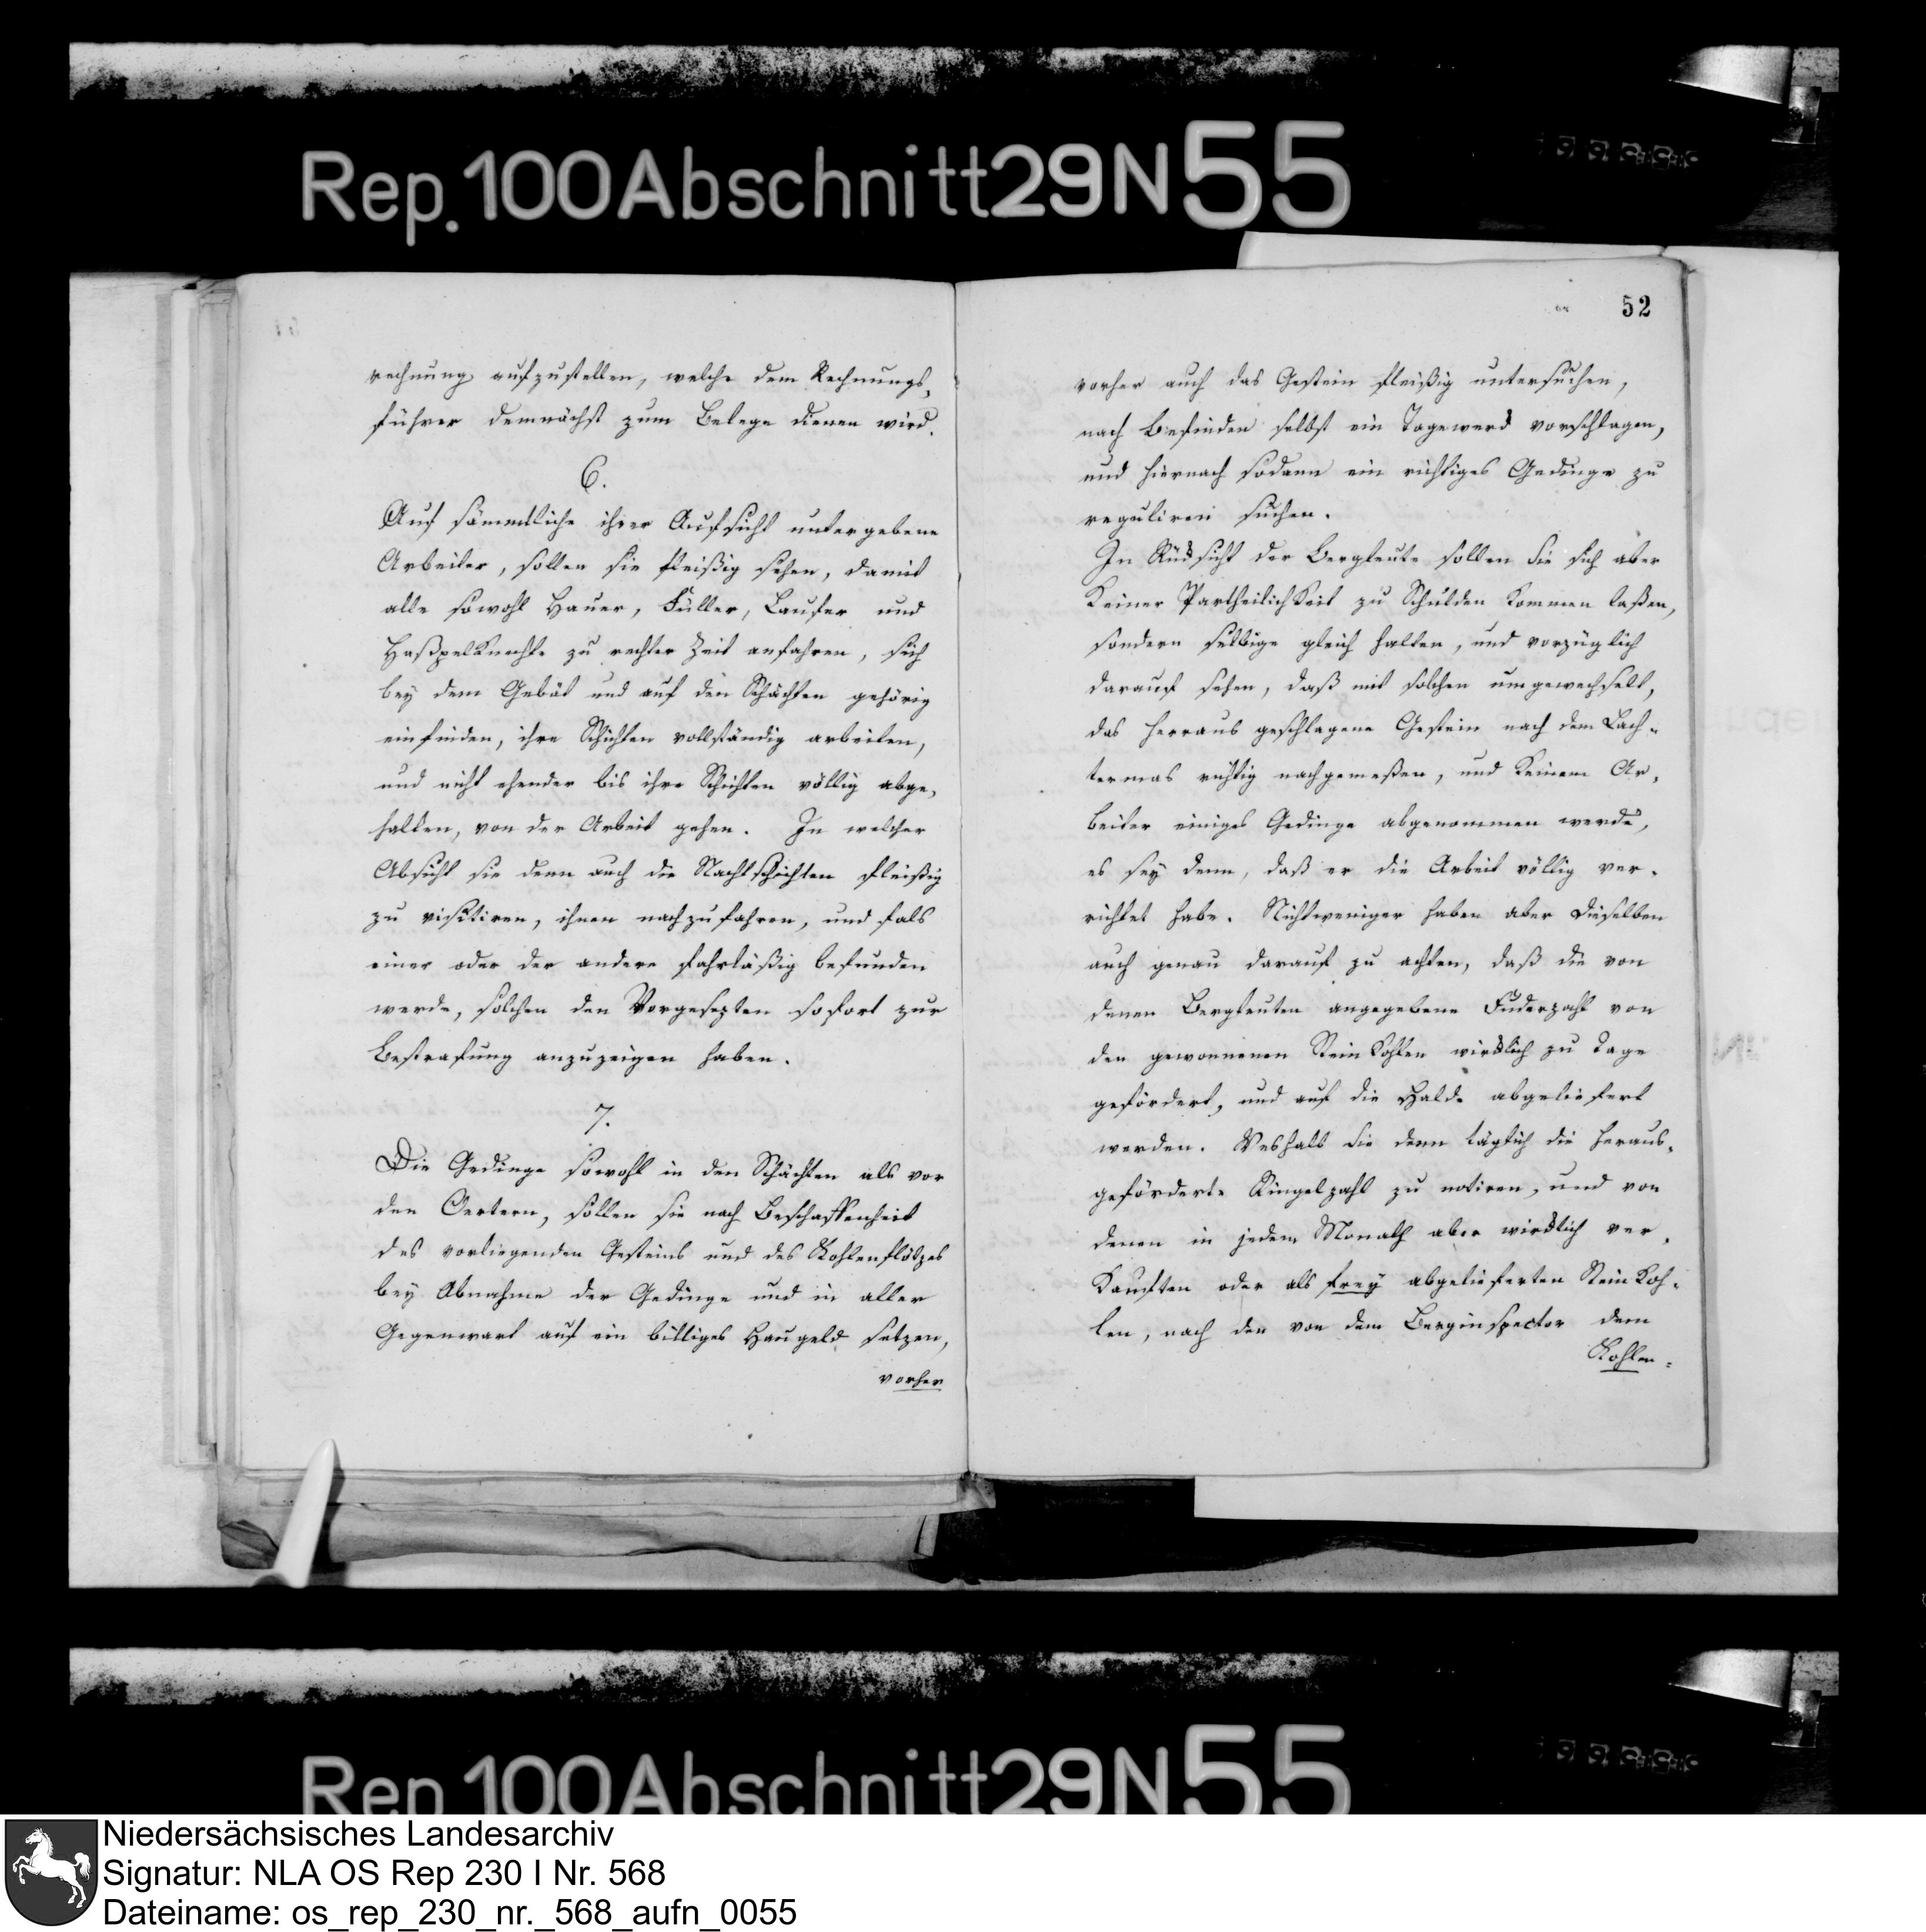 Rep. 100 Abschnitt 29 N 55
rechnung aufzustellen, welche dem Rechnungs-
führer demnächst zum Belege dienen wird.
6.
Auf sämmtliche ihrer Aufsicht untergebene
Arbeiter, sollen sie fleißig sehen, damit
alle sowohl Hauer, Füller, Laufer und
Haßpelknechte zu rechter Zeit anfahren, sich
bey dem Gebät und auf den Schächten gehörig
einfinden, ihre Schichten vollständig arbeiten,
und nicht ehender bis ihre Schichten völlig abge-
halten, von der Arbeit gehen. In welcher
Absicht sie denn auch die Nachtschichten fleißig
zu visitiren, ihnen nachzufahren, und fals
einer oder der andere fahrläßig befunden
werde, solchen den Vorgesezten sofort zur
Bestrafung anzuzeigen haben.
7.
Die Gedinge sowohl in den Schächten als vor
den Oertern, sollen sie nach Beschaffenheit
des vorliegenden Gesteins und des Kohlenflötzes
bey Abnahme der Gedinge und in aller
Gegenwart auf ein billiges Haugeld setzen,
vorher
52
vorher auch das Gestein fleißig untersuchen,
nach Befinden selbst ein Tagewerck vorschlagen,
und hiernach sodann ein richtiges Gedinge zu
reguliren suchen.
In Rücksicht der Bergleute sollen Sie sich aber
keiner Partheilichkeit zu Schulden kommen laßen,
sondern selbige gleich halten, und vorzüglich
darauf sehen, daß mit solchen umgewechselt,
das herraus geschlagene Gestein nach dem Lach-
termas richtig nachgemeßen, und keinem Ar-
beiter einiges Gedinge abgenommen werde,
es sey denn, daß er die Arbeit völlig ver-
richtet habe. Nichtweniger haben aber Dieselben
auch genau darauf zu achten, daß die von
denen Bergleuten angegebene Fuderzahl von
den gewonnenen Steinkohlen wircklich zu Tage
gefördert, und auf die Halde abgeliefert
werden. Weshalb Sie denn täglich die heraus-
geförderte Ringelzahl zu notiren, und von
denen in jedem Monath aber wircklich ver-
kauften oder als frey abgelieferten Steinkoh-
len, nach den von dem Berginspector dem
Kohlen-
Rep. 100 Abschnitt 29 N 55
Niedersächsisches Landesarchiv
Signatur: NLA OS Rep 230 I Nr. 568
Dateiname: os_rep_230_nr._568_aufn_0055